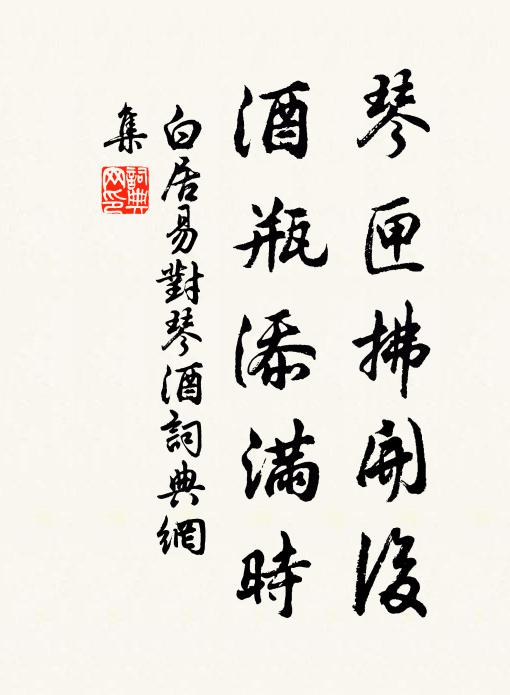 琴匣拂開後
酒瓶添滿時
白居易對琴酒詞典網
集
詞典網印